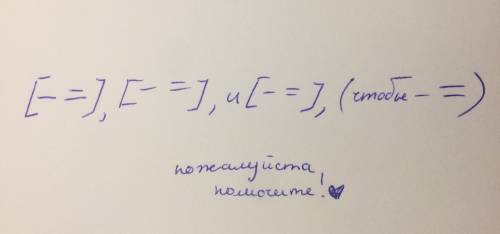 [– =], [– =], и [– =], (чтобы – =)
пожалуйста
помогите!♥